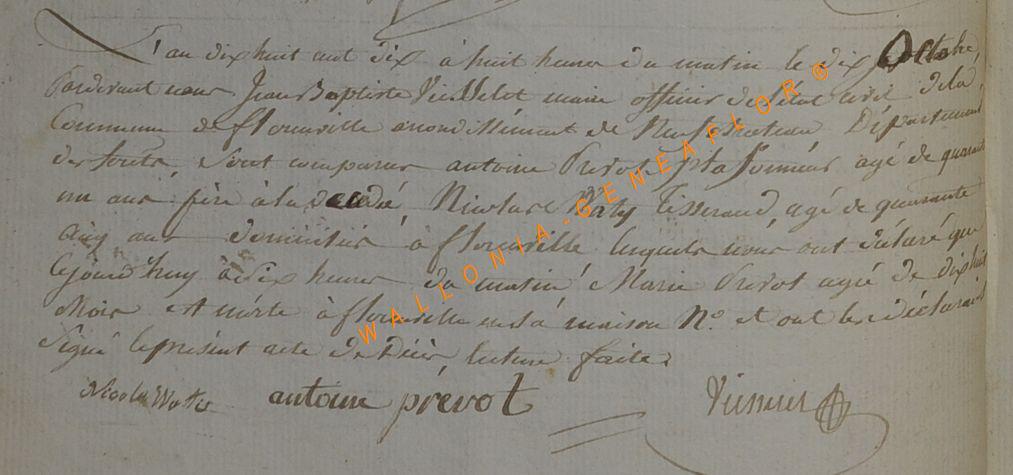 L'an dix huit cent dix à huit heures du matin le dix Octobre
Pardevant nous Jean Baptiste maire officier de l'état civil de la
Commune de florenville arrondissement de Neufchateau Département
des forêts, Sont comparus antoine Prevot plafonneur agé de quarante
un ans père à la décédé Nicolas Tisserand, agé de quarante
cinq ans domiciliés à florenville lesquels nous ont déclaré que
lejourd'huy à Six heures du matin Marie Prevot agée de dix huit
Mois Est morte à florenville en sa maison No. et ont les déclarants
Signé leprésent acte de Décès lecture faite.
Nicolas antoine prévot
WALLONIA-GENEAFLOR®